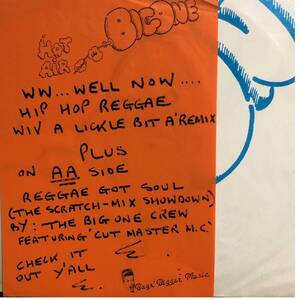 HOT AIR
BIG ONE
WW...WELL NOW....
HIP HOP REGGAE
WIV A LICKLE BIT A' REMIX
PLUS
ON AA SIDE
REGGAE GOT SOUL
(THE SCRATCH-MIX SHOWDOWN)
BY: THE BIG ONE CREW
FEATURING 'CUT MASTER M.C.'
CHECK IT
OUT Y'ALL
Bigger Music